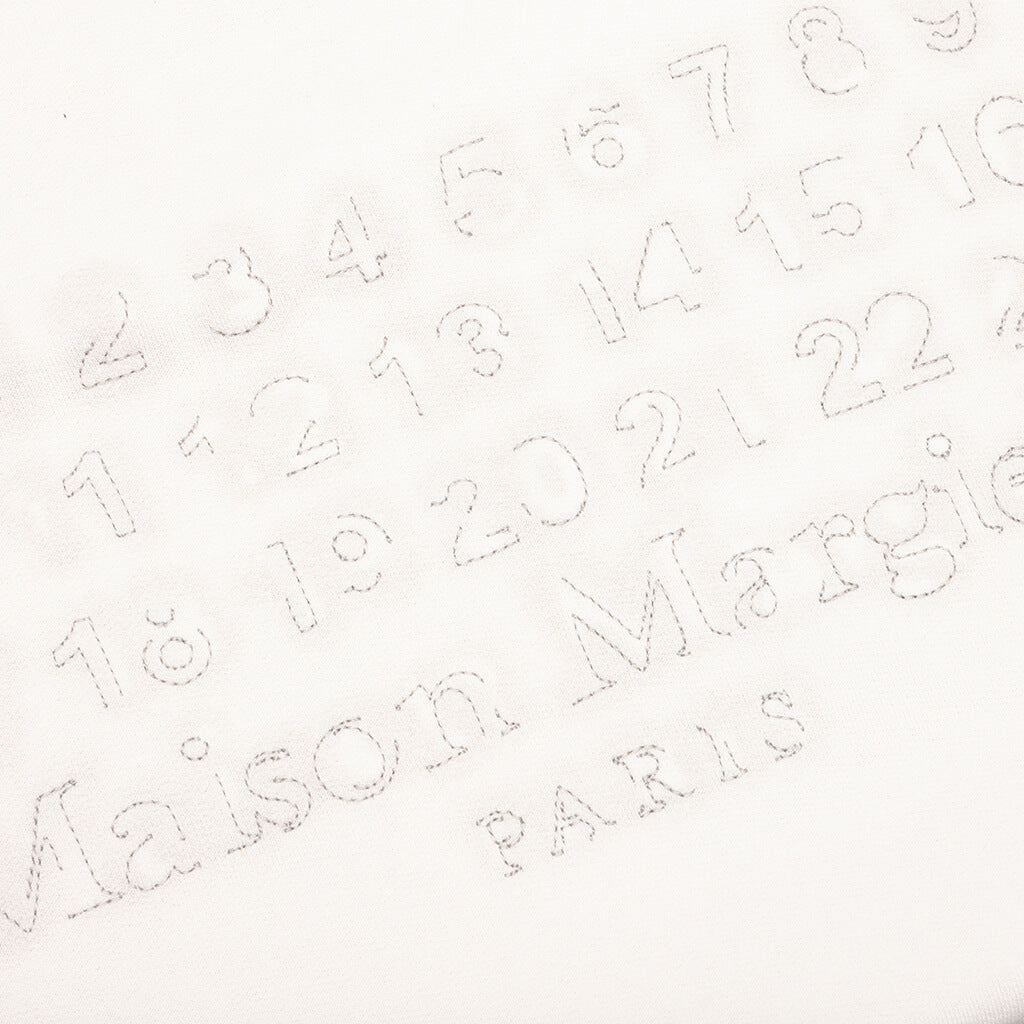 2 3 4 5 6 7 8 9
11 12 13 14 15 16
18 19 20 21 22 2
Maison Margie
PARIS